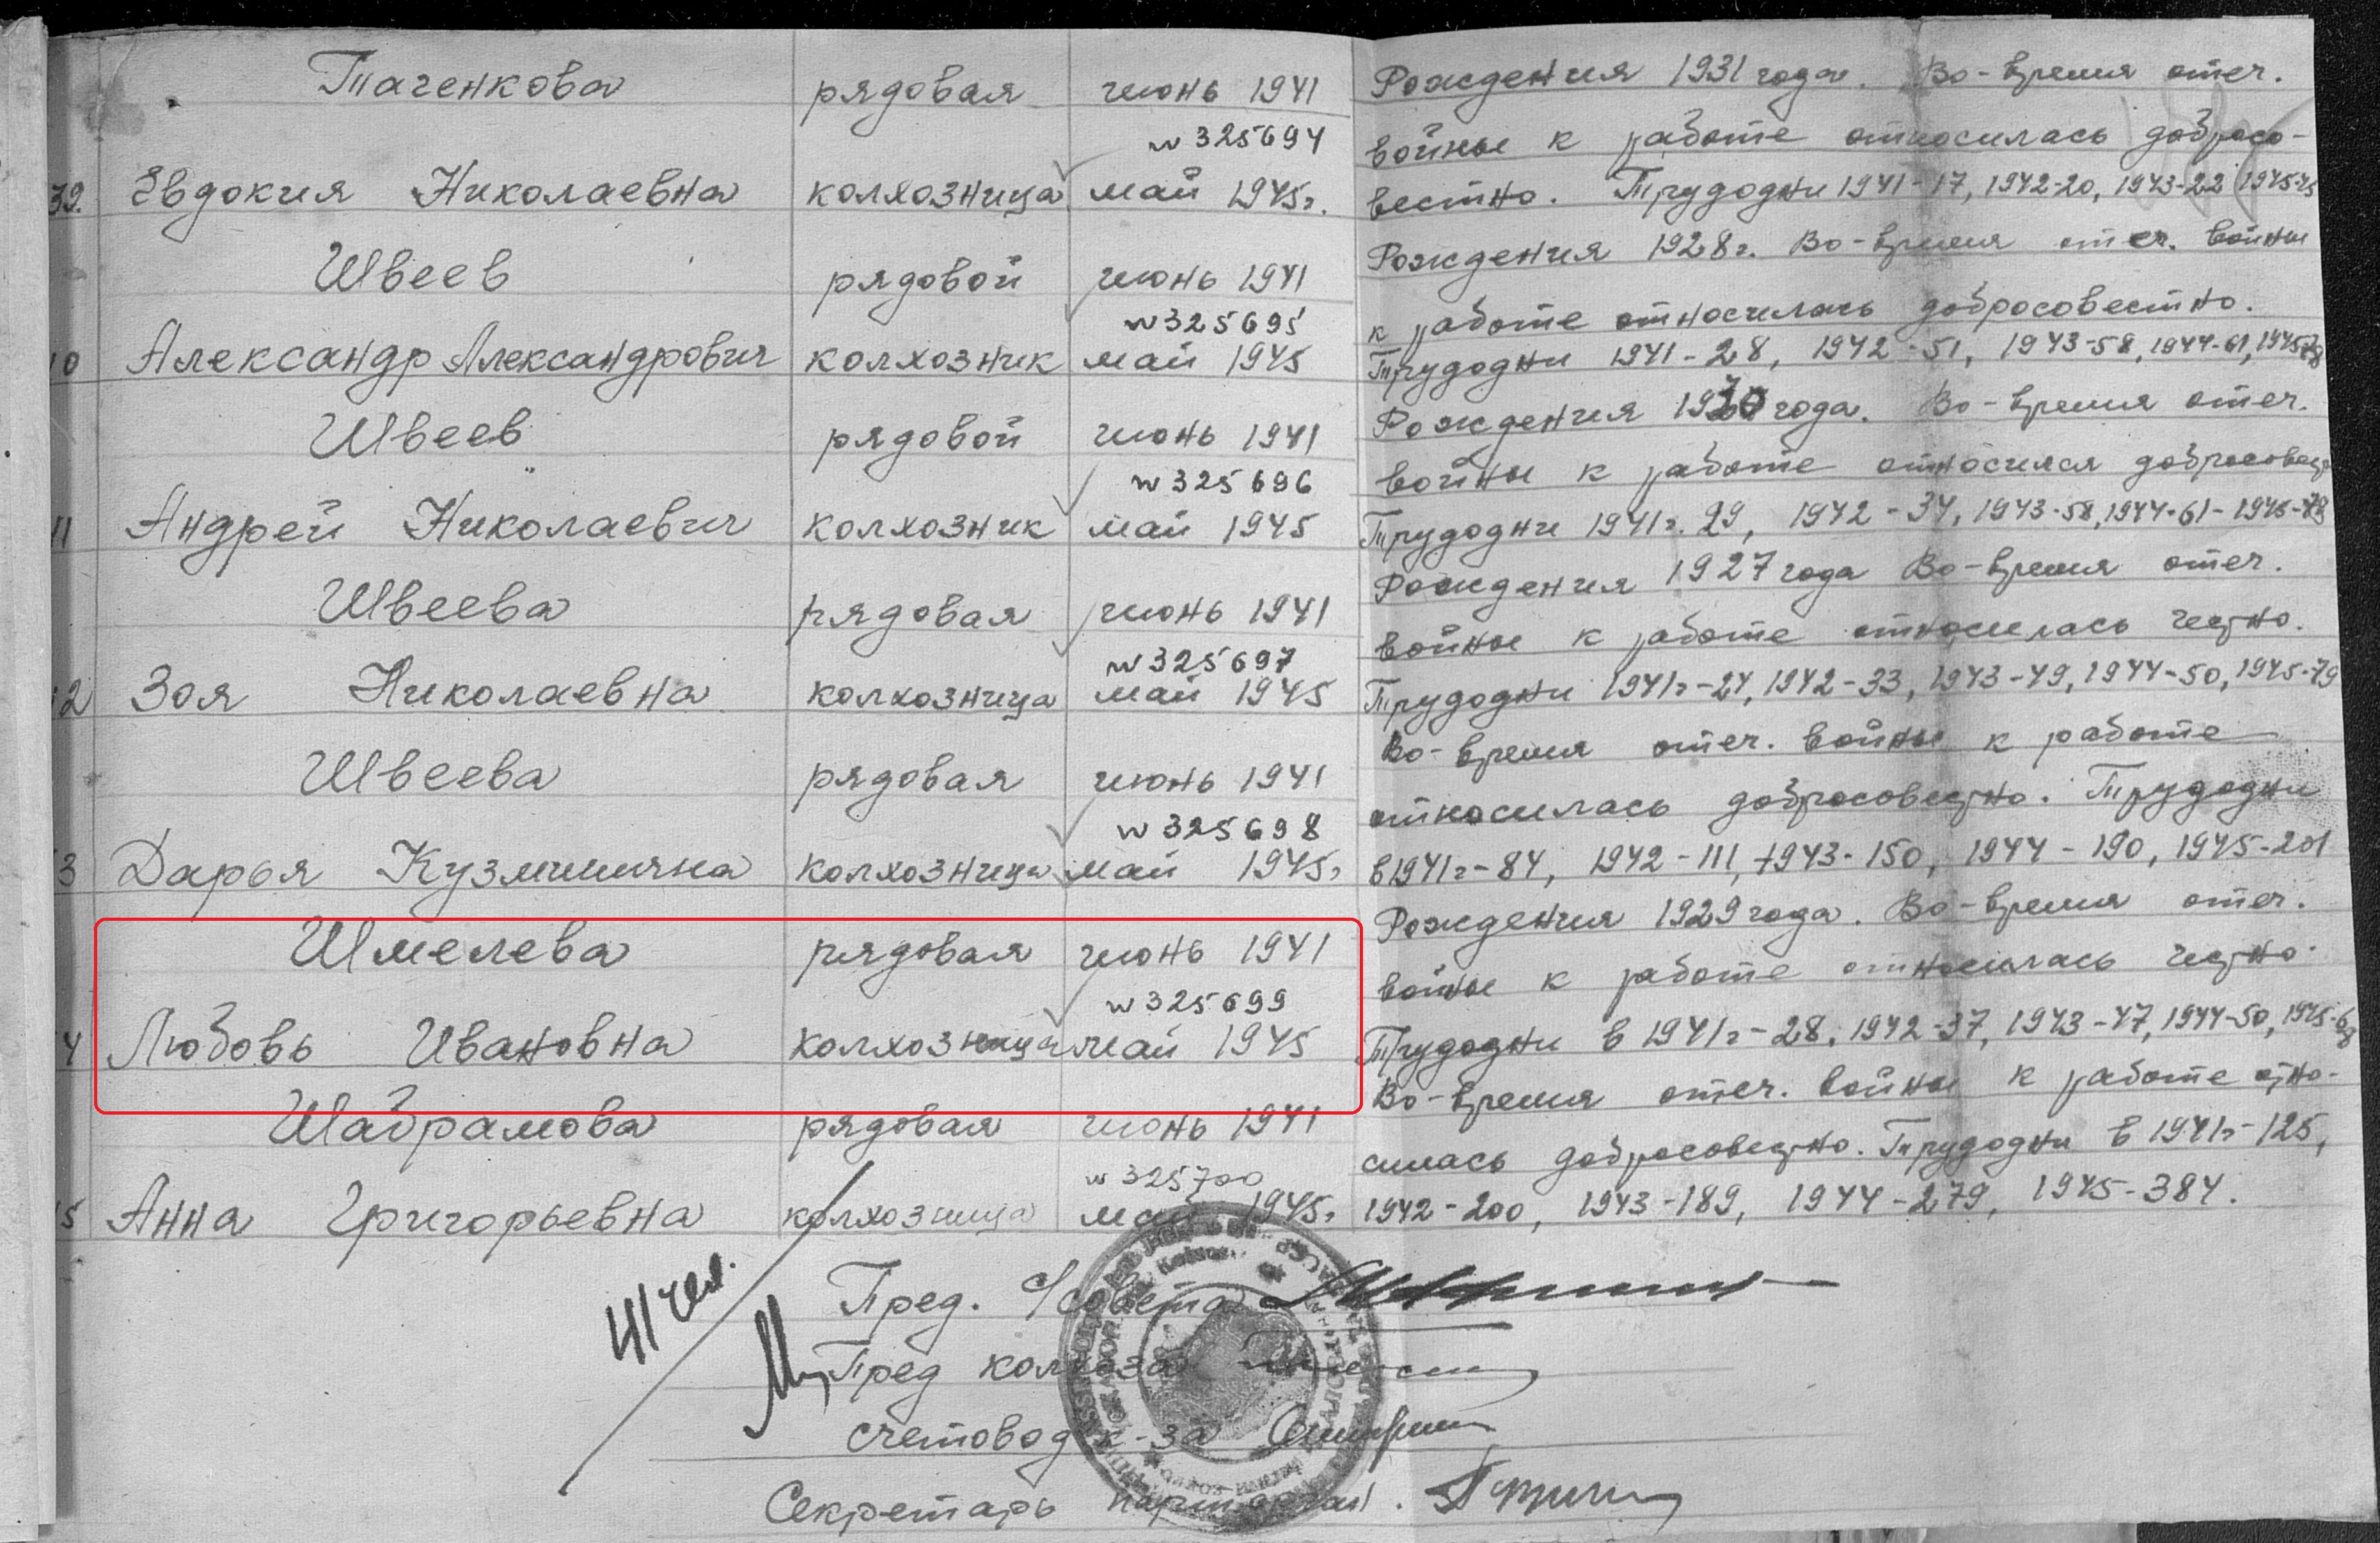 Таченкова рядовая июнь 1941 Рождения 1931 года. Во-время отеч.
w 325694 войны к работе относилась добросо-
39. Евдокия Николаевна колхозница май 1945г. вестно. Трудодни 1941-17, 1942-20, 1943-22 1945-45
Швеев рядовой июнь 1941 Рождения 1928г. Во-время отеч. войны
w 325695 к работе относилась добросовестно.
0 Александр Александрович колхозник май 1945 Трудодни 1941-28, 1942-51, 1943-58, 1944-61, 1945-78
Швеев рядовой июнь 1941 Рождения 1930 года. Во-время отеч.
w 325696 войны к работе относился добросовест
11 Андрей Николаевич колхозник май 1945 Трудодни 1941г. 29, 1942-34, 1943-58, 1944-61-1945-78
Швеева рядовая июнь 1941 Рождения 1927 года Во-время отеч.
w 325697 войны к работе относилась честно.
12 Зоя Николаевна колхозница май 1945 Трудодни 1941г-24, 1942-33, 1943-49, 1944-50, 1945-79
Швеева рядовая июнь 1941 Во-время отеч. войны к работе
w 325698 относилась добросовестно. Трудодни
3 Дарья Кузминична колхозница май 1945г. в 1941г-84, 1942-111, 1943-150, 1944-190, 1945-201
Шмелева рядовая июнь 1941 Рождения 1929 года. Во-время отеч.
w 325699 войны к работе относилась честно.
4 Любовь Ивановна колхозница май 1945 Трудодни в 1941г-28, 1942-37, 1943-47, 1944-50, 1945-68
Шабрамова рядовая июнь 1941 Во-время отеч. войны к работе отно-
w 325700 силась добросовестно. Трудодни в 1941г-125,
5 Анна Григорьевна колхозница май 1945г. 1942-200, 1943-189, 1944-279, 1945-384.
41 чел.
Пред. с/совета
Пред колхоза
счетовод к-за
Секретарь парторган.